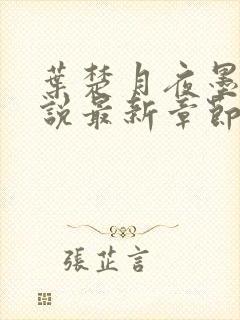 葉楚月夜墨
說最新章節
張芷言